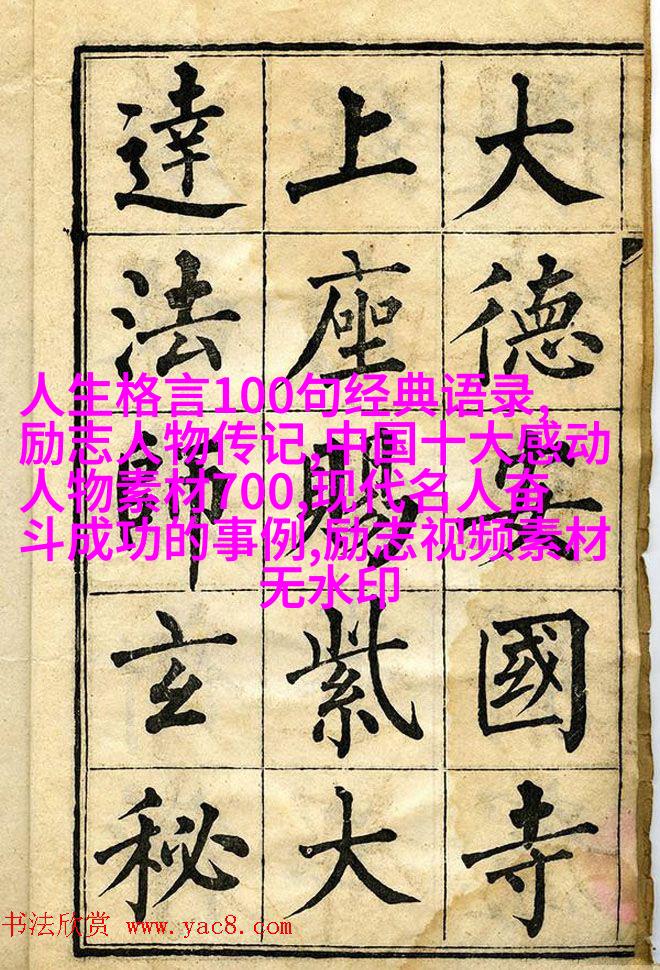 大德安國寺
上座賜紫大
達法師玄秘
人生格言100句经典语录,
励志人物传记,中国十大感动
人物素材700,现代名人奋
斗成功的事例,励志视频素材
无水印
书法欣赏 www.yac8.com